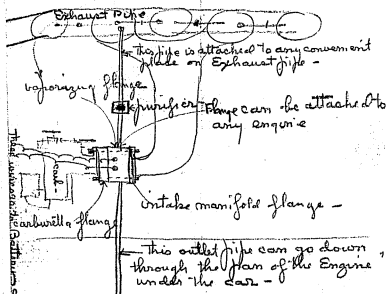 Exhaust Pipe
This pipe is attached to any convenient
place on Exhaust pipe -
vaporizing flange
purifier
Flange can be attached to
any engine
coil
carburetta flange
intake manifold flange -
This outlet pipe can go down
through the pan of the Engine,
under the car -